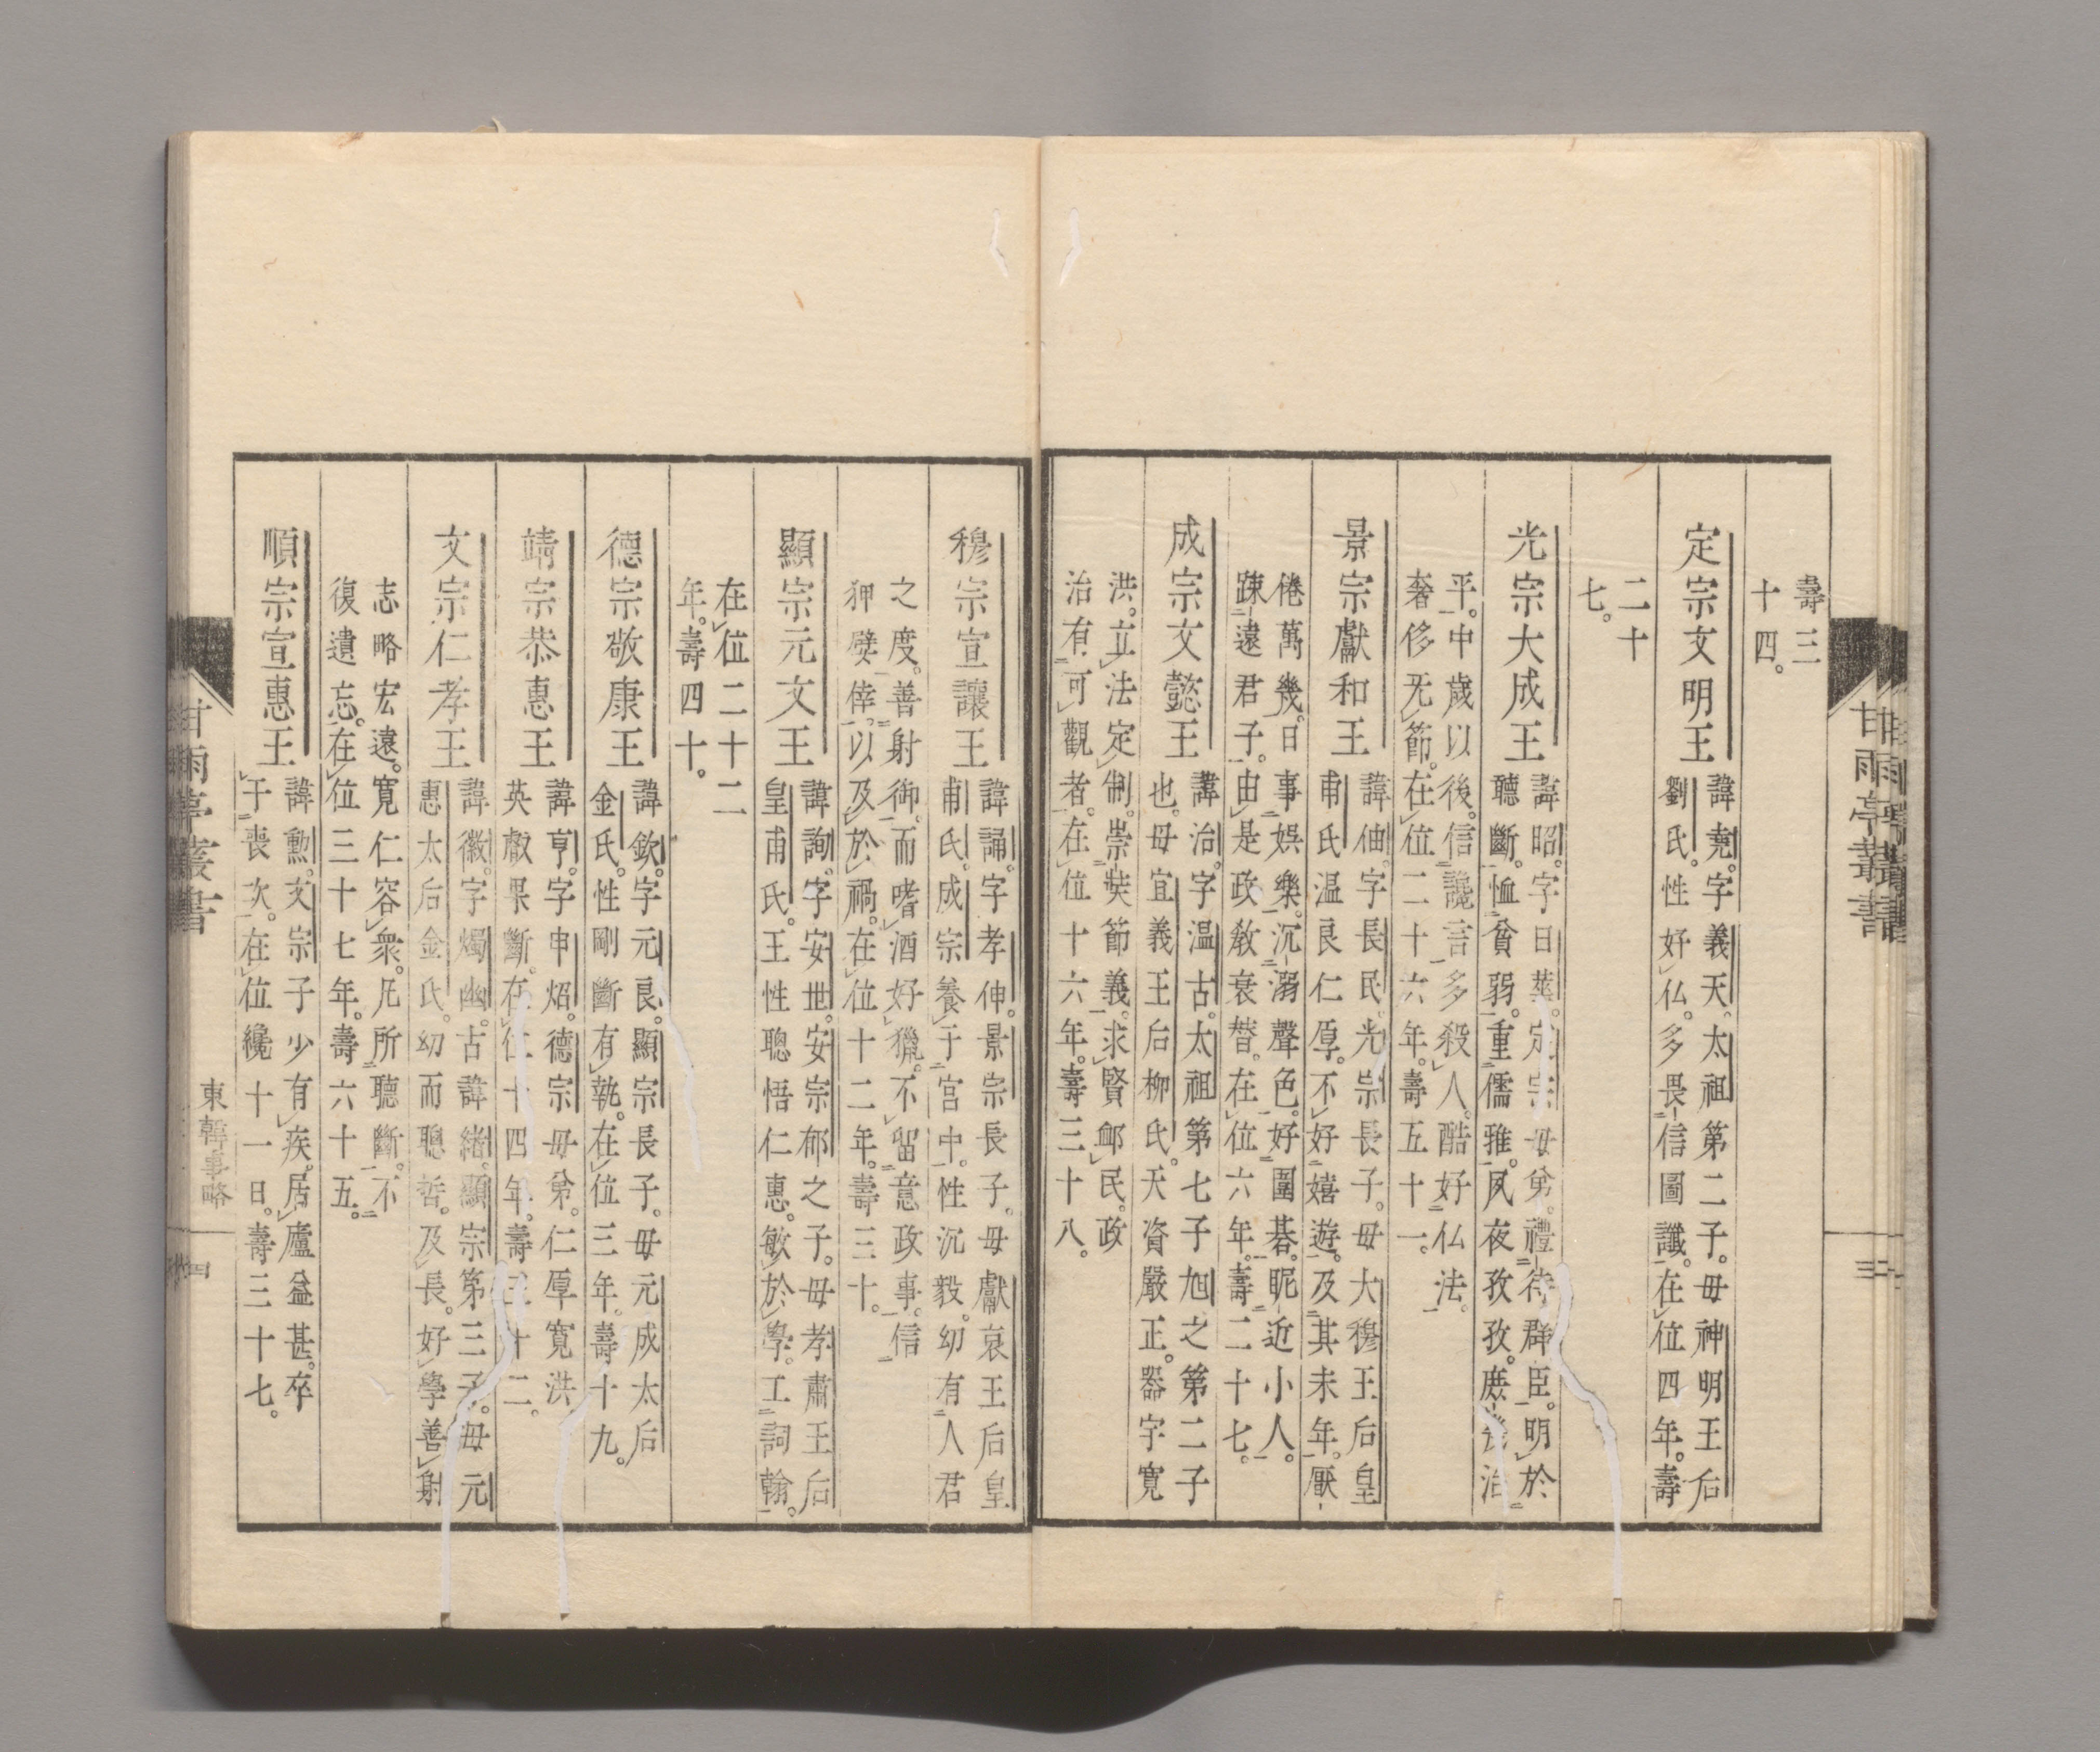 壽三
十四。
定宗文明王
諱堯。字義天。太祖第二子。毋神明王后
劉氏。性好仏。多畏信圖讖。在位四年。壽
二十
七。
光宗大成王
諱昭。字日華。定宗毋弟。禮待群臣。明於
聽斷。恤貧弱。重儒雅。夙夜孜孜。庶幾治
平。中歲以後。信讒言多殺人。酷好仏法。
奢侈无節。在位二十六年。壽五十一。
景宗獻和王
諱伷。字長民。光宗長子。毋大穆王后皇
甫氏。温良仁厚。不好嬉遊。及其末年。厭
倦萬幾。日事娯樂。沉溺聲色。好圍碁。昵近小人。
踈遠君子。由是政敎衰替。在位六年。壽二十七。
成宗文懿王
諱治。字温古。太祖第七子旭之第二子
也。毋宣義王后柳氏。天資嚴正。器宇寬
洪。立法定制。崇奘節義。求賢䘏民。政
治有可觀者。在位十六年。壽三十八。
穆宗宣讓王
諱誦。字孝伸。景宗長子。毋獻哀王后皇
甫氏。成宗養于宮中。性沉毅。幼有人君
之度。善射御。而嗜酒好獵。不留意政事。信
狎嬖倖。以及於禍。在位十二年。壽三十。
顯宗元文王
諱詢。字安世。安宗郁之子。毋孝肅王后
皇甫氏。王性聰悟仁惠。敏於學。工詞翰。
在位二十二
年。壽四十。
德宗敬康王
諱欽。字元良。顯宗長子。毋元成太后
金氏。性剛斷有執。在位三年。壽十九。
靖宗恭惠王
諱亨。字申炤。德宗毋弟。仁厚寬洪。
英㪉果斷。在位十四年。壽三十二。
文宗仁孝王
諱徽。字燭幽。古諱緖。顯宗第三子。毋元
惠太后金氏。幼而聰哲。及長。好學善射
志略宏遠。寬仁容衆。凡所聽斷。不
復遺忘。在位三十七年。壽六十五。
順宗宣惠王
諱勳。文宗子少有疾。居廬益甚。卒
于喪次。在位纔十一日。壽三十七。
甘雨亭叢書
三
甘雨亭叢書
東韓事略
四